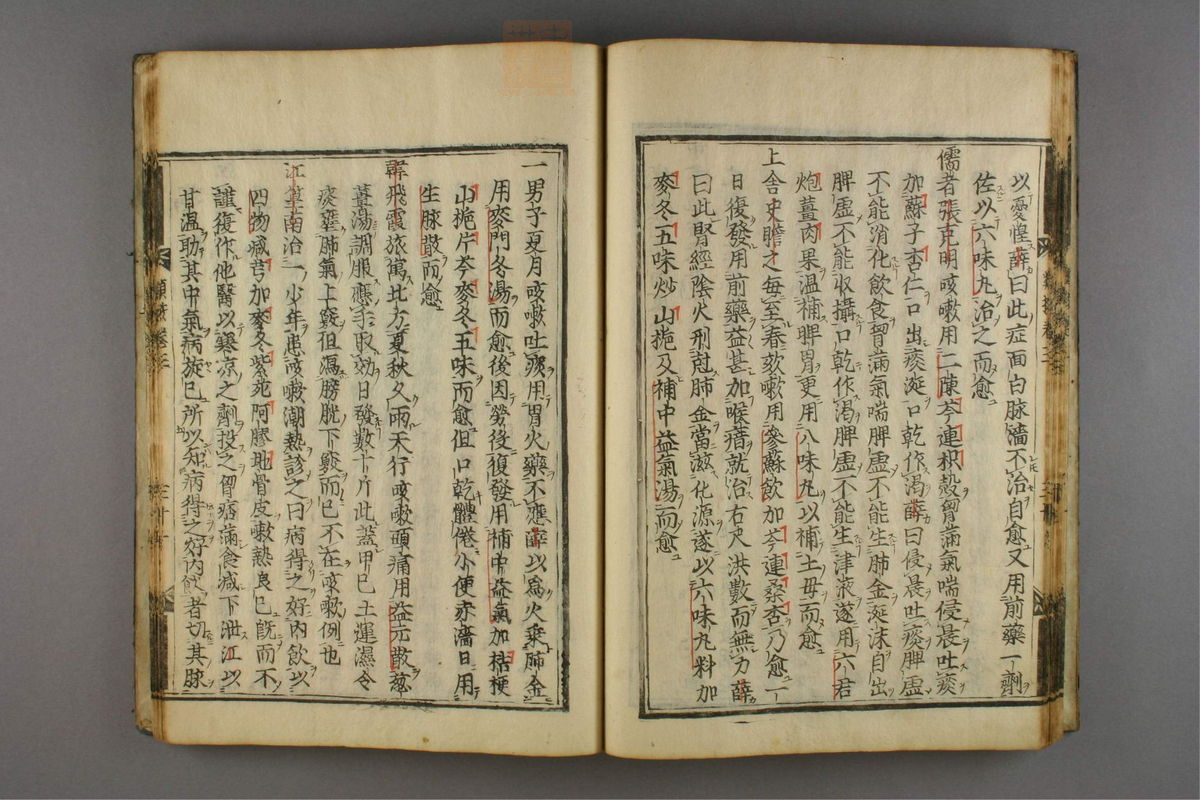 以憂惶薛曰此症面白脉濇不治自愈又用前藥一劑
佐以六味丸治之而愈
儒者張克明咳嗽用二陳芩連枳殻胷滿氣喘侵晨吐痰
加蘇子杏仁口出痰涎口乾作渇薛曰侵晨吐痰脾虛
不能消化飲食胷滿氣喘脾虛不能生肺金涎沫自出
脾虛不能收攝口乾作渇脾虛不能生津液遂用六君
炮薑肉果温補脾胃更用八味丸以補土母而愈
上舍史瞻之毎至春欬嗽用參蘇飲加芩連桑杏乃愈一
日復發用前藥益甚加喉瘖就治右尺洪數而無力薛
曰此腎經陰火刑尅肺金當滋化源遂以六味丸料加
麥冬五味炒山梔及補中益氣湯而愈
一男子夏月咳嗽吐痰用胃火藥不應薛以爲火乗肺金
用麥門冬湯而愈後因勞後復發用補中益氣加桔梗
山梔片芩麥冬五味而愈但口乾體倦小便赤濇日用
生脉散而愈
韓飛霞旅寓北方夏秋久雨天行咳嗽頭痛用益元散葱
薑湯調服應手取効日發數十斤此蓋甲巳土運濕令
痰壅肺氣上竅但瀉膀胱下竅而已不在咳嗽例也
江篁南治一少年患咳嗽潮熱診之曰病得之好内飲以
四物减芎加麥冬紫菀阿膠地骨皮嗽熱良已旣而不
謹復作他醫以寒凉之劑投之胷痞滿食减下泄江以
甘温助其中氣病旋已所以知病得之好内者切其脉
類按卷三
三十一